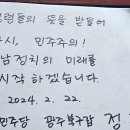 영령들의 뜻을 받들어
다시, 민주주의!
남정치의 미래를
시작 하겠습니다.
2024. 2. 22.
민주당 광주북구갑 정